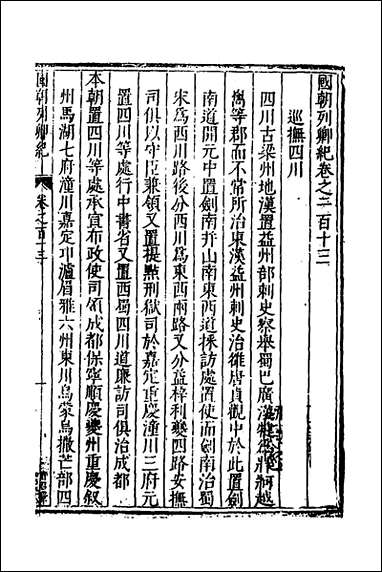 國朝列卿紀卷之一百十三
巡撫四川
四川古梁州地漢置益州部刺史察舉蜀巴廣漢犍為牂牁越
嶲等郡而不常所治東漢益州刺史治雒唐貞觀中於此置劍
南道開元中置劍南并山南東西道採訪處置使而劍南治蜀
宋為西川路後分西川為東西兩路又分益梓利夔四路安撫
司俱以守臣兼領又置提點刑獄司於嘉定重慶潼川三府元
置四川等處行中書省又置西蜀四川道廉訪司俱治成都
本朝置四川等處承宣布政使司領成都保寧順慶夔州重慶敘
州馬湖七府潼川嘉定邛瀘眉雅六州東川烏蒙烏撒芒部四
國朝列卿紀
卷之一百十三